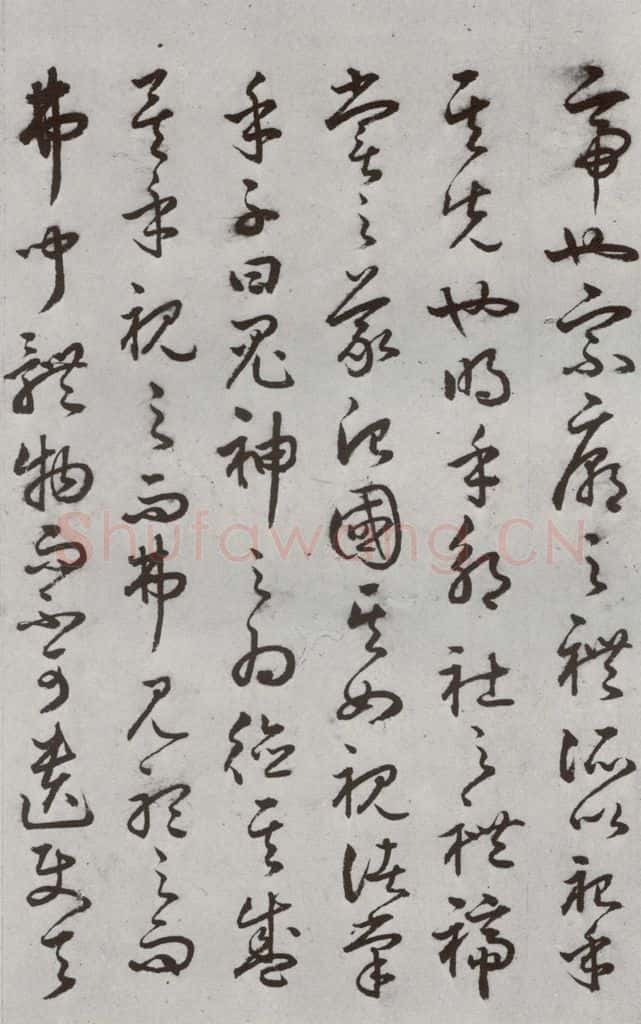 帝也宗廟之禮所以祀乎
其先也明乎郊社之禮禘
嘗之義治國其如視諸掌
乎子曰鬼神之為德其盛
矣乎視之而弗見聽之而
弗聞體物而不可遺使天
Shufawang.CN